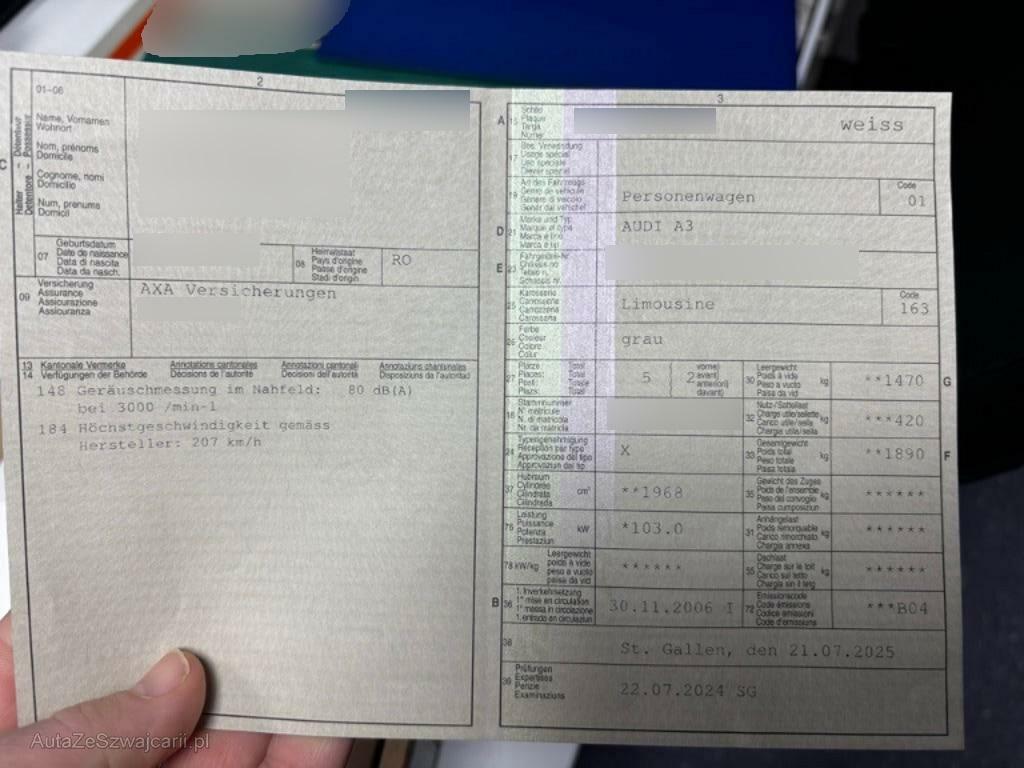 2
01-06
Name, Vornamen
Wohnort
Nom, prénoms
Domicile
Cognome, nomi
Domicilio
Num, prenums
Domicil
C
Halter Détenteur
07 Geburtsdatum
Date de naissance
Data di nascita
Data da nasch.
08 Heimatstaat
Pays d'origine
Paese d'origine
Stadi d'origin
RO
09 Versicherung
Assurance
Assicurazione
Assicuranza
AXA Versicherungen
13 Kantonale Vermerke Annotations cantonales Annotazioni cantonali Annotaziuns chantunalas
14 Verfügungen der Behörde Décisions de l'autorité Decisioni dell'autorità Disposiziuns da l'autoritad
148 Geräuschmessung im Nahfeld: 80 dB(A)
bei 3000 /min-1
184 Höchstgeschwindigkeit gemäss
Hersteller: 207 km/h
3
A 15 Schild
Plaque
Targa
Numer
weiss
17 Bes. Verwendung
Usage spécial
Uso speciale
Diever spezial
19 Art des Fahrzeugs
Genre de véhicule
Genere di veicolo
Gener dal vehichel
Personenwagen
Code
01
D 21 Marke und Typ
Marque et type
Marca e tipo
Marca e tip
AUDI A3
E 23 Fahrgestell-Nr.
Châssis no
Telaio n.
Schassis nr.
25 Karosserie
Carrosserie
Carrozzeria
Carossaria
Limousine
Code
163
26 Farbe
Couleur
Colore
Colur
grau
27 Plätze Total
Places: Total
Posti: Totale
Plazs: Total
5
2
vorne)
avant)
anteriori)
davant)
30 Leergewicht
Poids à vide
Peso a vuoto
Paisa da vid
kg
**1470
G
18 Stammnummer
N° matricule
N. di matricola
Nr. da matricla
32 Nutz-/Sattellast
Charge utile/sellette
Carico utile/sella
Chargia utila/sella
kg
***420
24 Typengenehmigung
Réception par type
Approvazione del tipo
Approvaziun dal tip
X
33 Gesamtgewicht
Poids total
Peso totale
Paisa totala
kg
**1890
F
37 Hubraum
Cylindrée
Cilindrata
Cilindrada
cm³
**1968
35 Gewicht des Zuges
Poids de l'ensemble
Peso del convoglio
Paisa cumposiziun
kg
******
76 Leistung
Puissance
Potenza
Prestaziun
kW
*103.0
31 Anhängelast
Poids remorquable
Carico rimorchiato
Chargia annexa
kg
******
78 kW/kg
Leergewicht
poids à vide
peso a vuoto
paisa da vid
******
55 Dachlast
Charge sur le toit
Carico sul tetto
Chargia sin il tetg
kg
******
B 36 1. Inverkehrsetzung
1re mise en circulation
1a messa in circolazione
1. entrada en circulaziun
30.11.2006 I
72 Emissionscode
Code émissions
Codice emissioni
Code d'emissiuns
***B04
38
St. Gallen, den 21.07.2025
39 Prüfungen
Expertises
Perizie
Examinaziuns
22.07.2024 SG
AutaZeSzwajcarii.pl